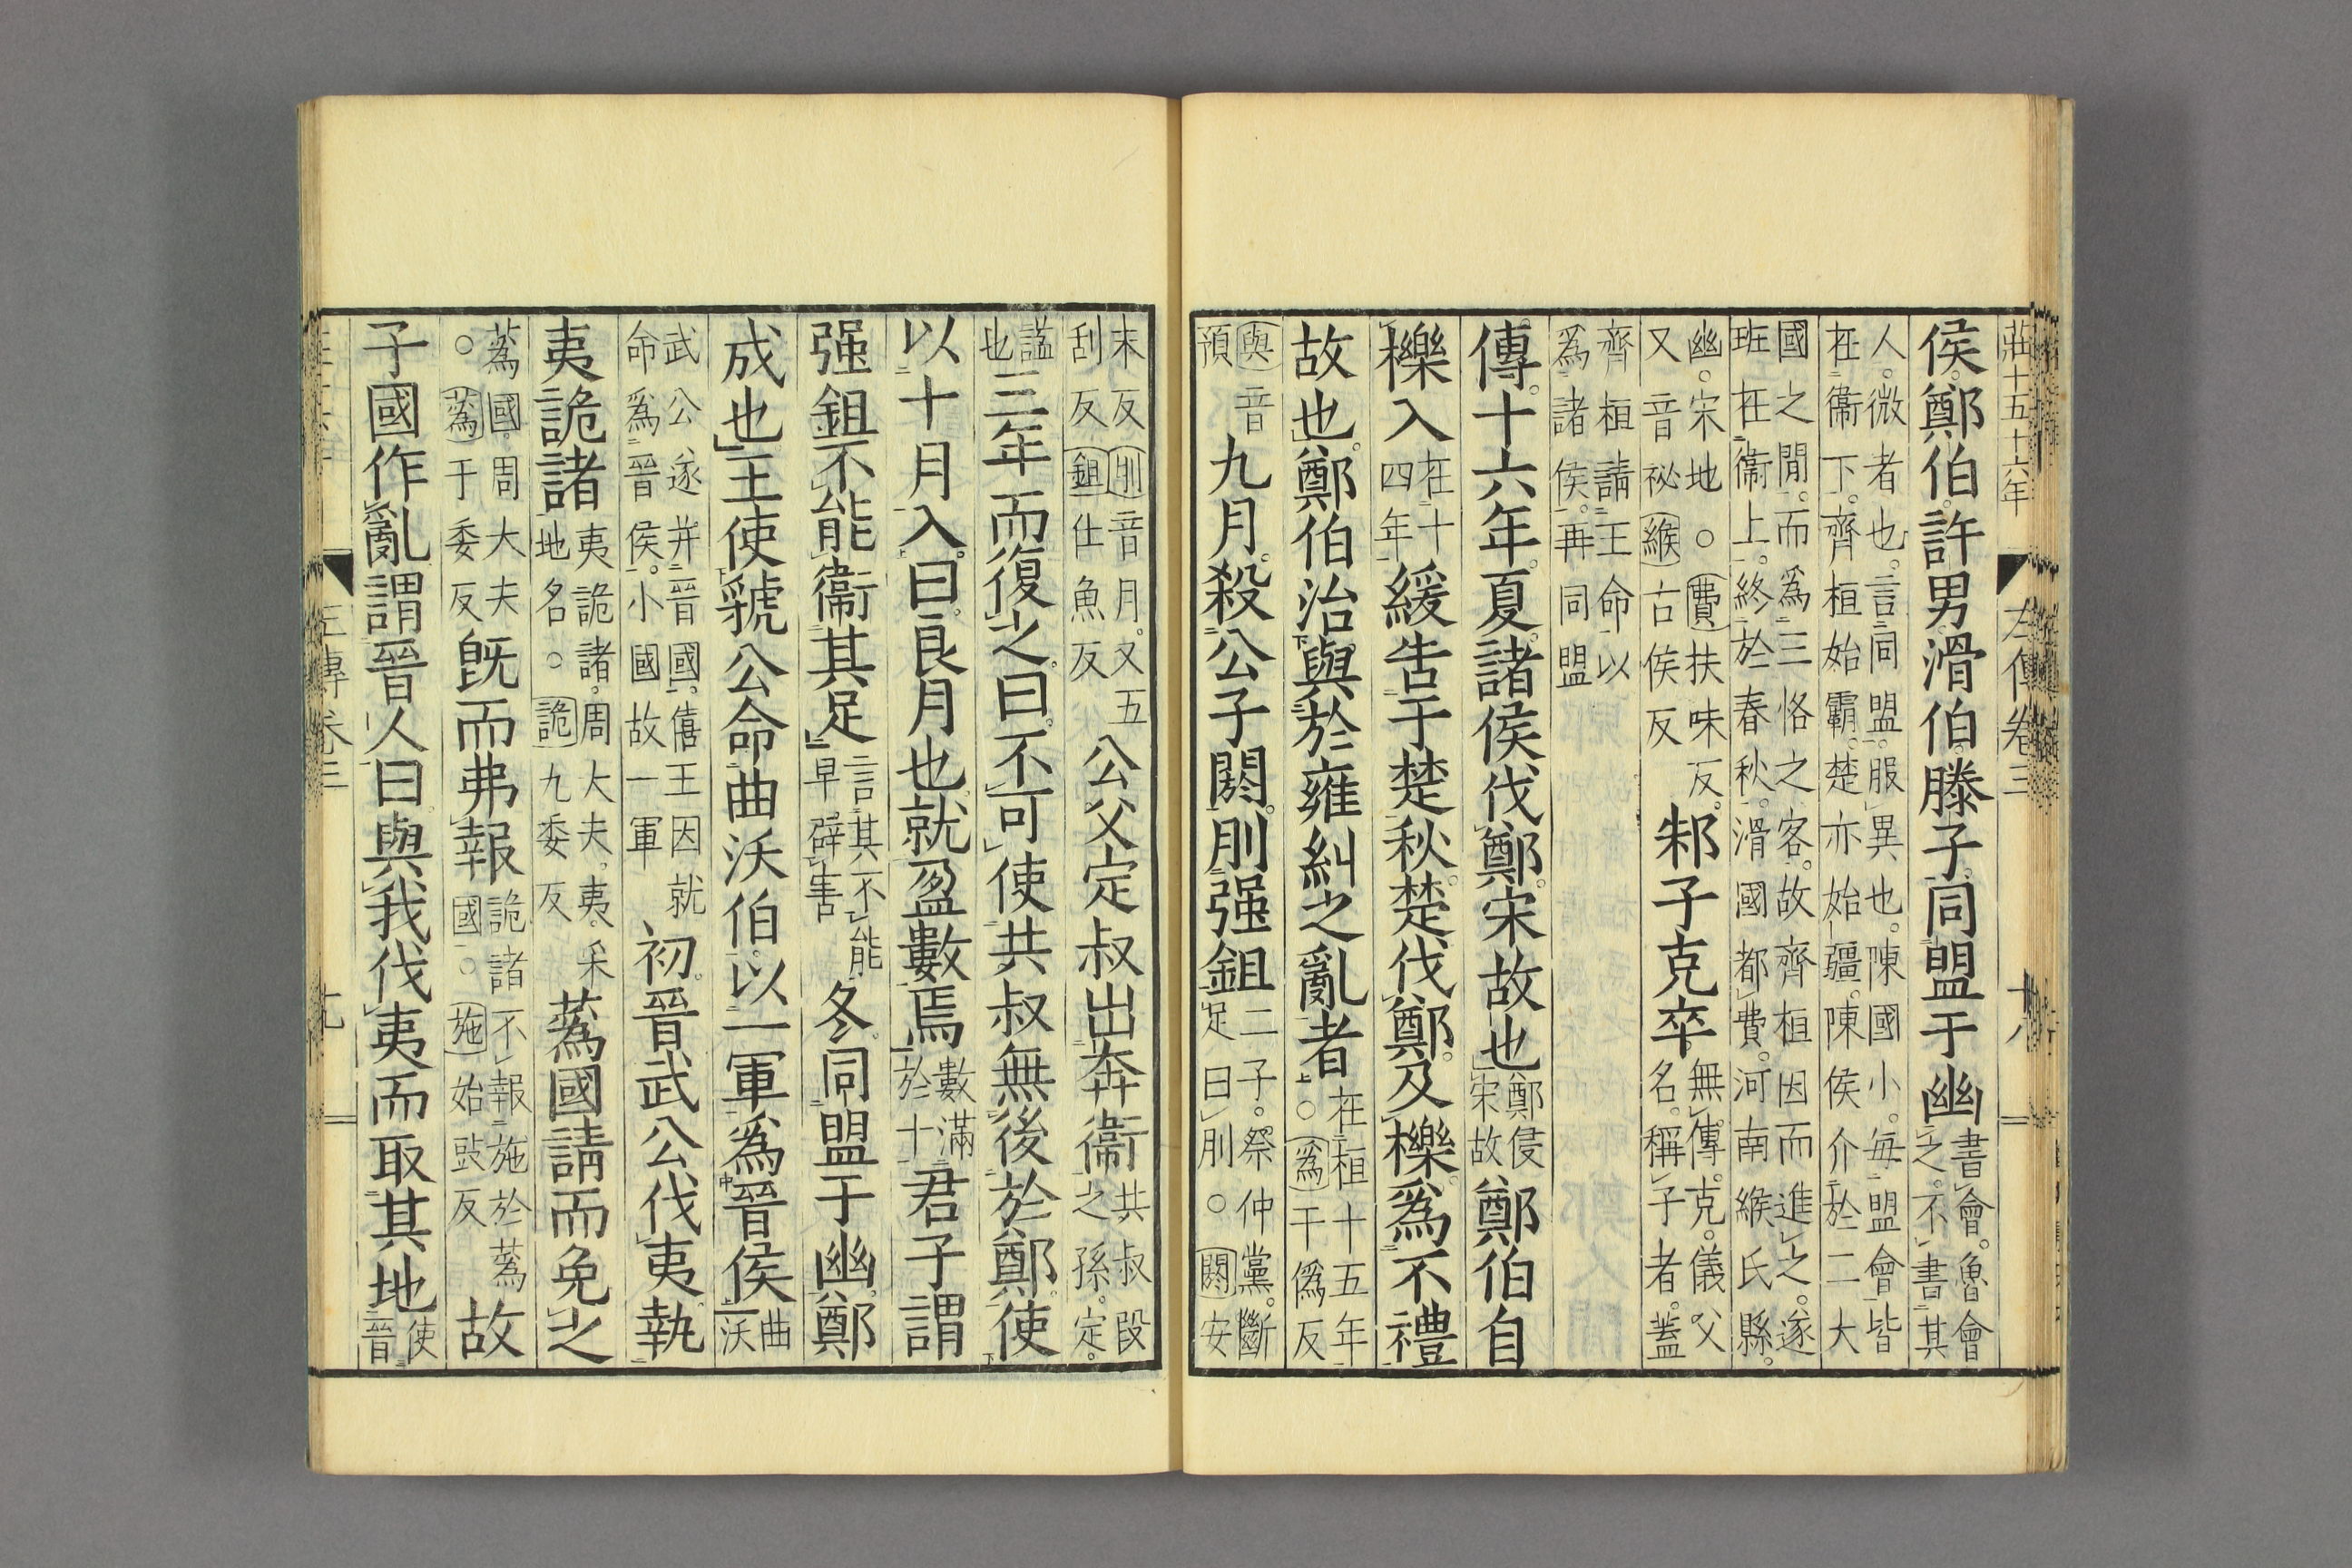 莊十五十六年 左傳卷三 十八
侯。鄭伯。許男。滑伯。滕子。同盟于幽書會。魯會
之。不書其
人。微者也。言同盟。服異也。陳國小。每盟會皆
在衞下。齊桓始霸。楚亦始彊。陳侯介於二大
國之閒。而爲三恪之客。故齊桓因而進之。遂
班在衞上。終於春秋。滑國都費。河南緱氏縣。
幽。宋地○費扶味反。
又音祕緱古侯反邾子克卒無傳。克。儀父
名。稱子者。蓋
齊桓請王命以
爲諸侯。再同盟
傳。十六年。夏。諸侯伐鄭。宋故也鄭侵
宋故鄭伯自
櫟入在十
四年緩告于楚。秋。楚伐鄭。及櫟。爲不禮
故也。鄭伯治與於雍糾之亂者在桓十五年
○爲于僞反
與音
預九月。殺公子閼。刖强鉏二子。祭仲黨。斷
足曰刖。○閼安
末反刖音月。又五
刮反鉏仕魚反公父定叔出奔衞共叔段
之孫。定。
謚
也三年而復之。曰。不可使共叔無後於鄭。使
以十月入。曰。良月也。就盈數焉數滿
於十君子謂
强鉏不能衞其足言其不能
早辟害冬。同盟于幽。鄭
成也。王使虢公命曲沃伯。以一軍爲晉侯曲
沃
武公遂并晉國。僖王因就
命爲晉侯。小國故一軍初。晉武公伐夷。執
夷詭諸夷詭諸。周大夫。夷。采
地名。○詭九委反蒍國請而免之
蒍國。周大夫
○蒍于委反旣而弗報詭諸不報施於蒍
國。○施始豉反故
子國作亂。謂晉人曰。與我伐夷而取其地使
晉
左傳卷三 十九